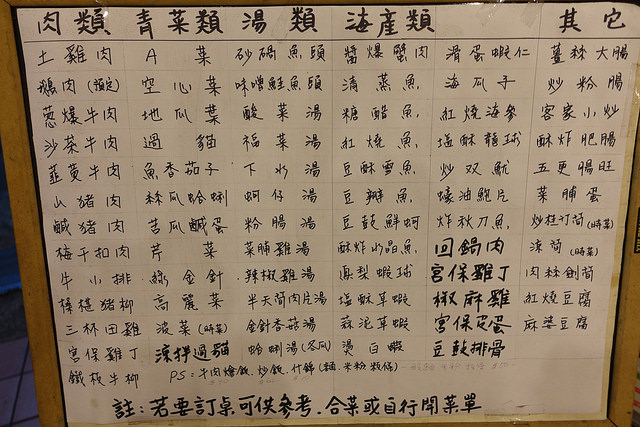 肉類 青菜類 湯類 海產類 其它
土雞肉 A菜 砂鍋魚頭 醬爆蟹肉 滑蛋蝦仁 薑絲大腸
鵝肉(預定) 空心菜 味噌鮭魚頭 清蒸魚 海瓜子 炒粉腸
蔥爆牛肉 地瓜葉 酸菜湯 糖醋魚 紅燒海參 客家小炒
沙茶牛肉 過貓 福菜湯 紅燒魚 塩酥龍球 酥炸肥腸
韮黃牛肉 魚香茄子 下水湯 豆酥雪魚 炒双魷 五更腸旺
山猪肉 絲瓜蛤蜊 蚵仔湯 豆瓣魚 蠔油鮑片 菜脯蛋
鹹猪肉 苦瓜鹹蛋 粉腸湯 豆豉鮮蚵 炸秋刀魚 炒桂竹筍(時菜)
梅干扣肉 芹菜 菜脯雞湯 酥炸水晶魚 回鍋肉 涼筍(時菜)
牛小排 綠金針 辣椒雞湯 鳳梨蝦球 宮保雞丁 肉絲劍筍
橙猪柳 高麗菜 半天筍肉片湯 塩酥草蝦 椒麻雞 紅燒豆腐
三杯田雞 菠菜(時菜) 金針香菇湯 蒜泥草蝦 宮保皮蛋 麻婆豆腐
宮保雞丁 涼拌過貓 蛤蜊湯(冬瓜) 燙白蝦 豆豉排骨
鐵板牛柳 PS:牛肉燴飯.炒飯.什錦(麵.米粉.粄條)
註:若要訂桌可供參考.合菜或自行開菜單